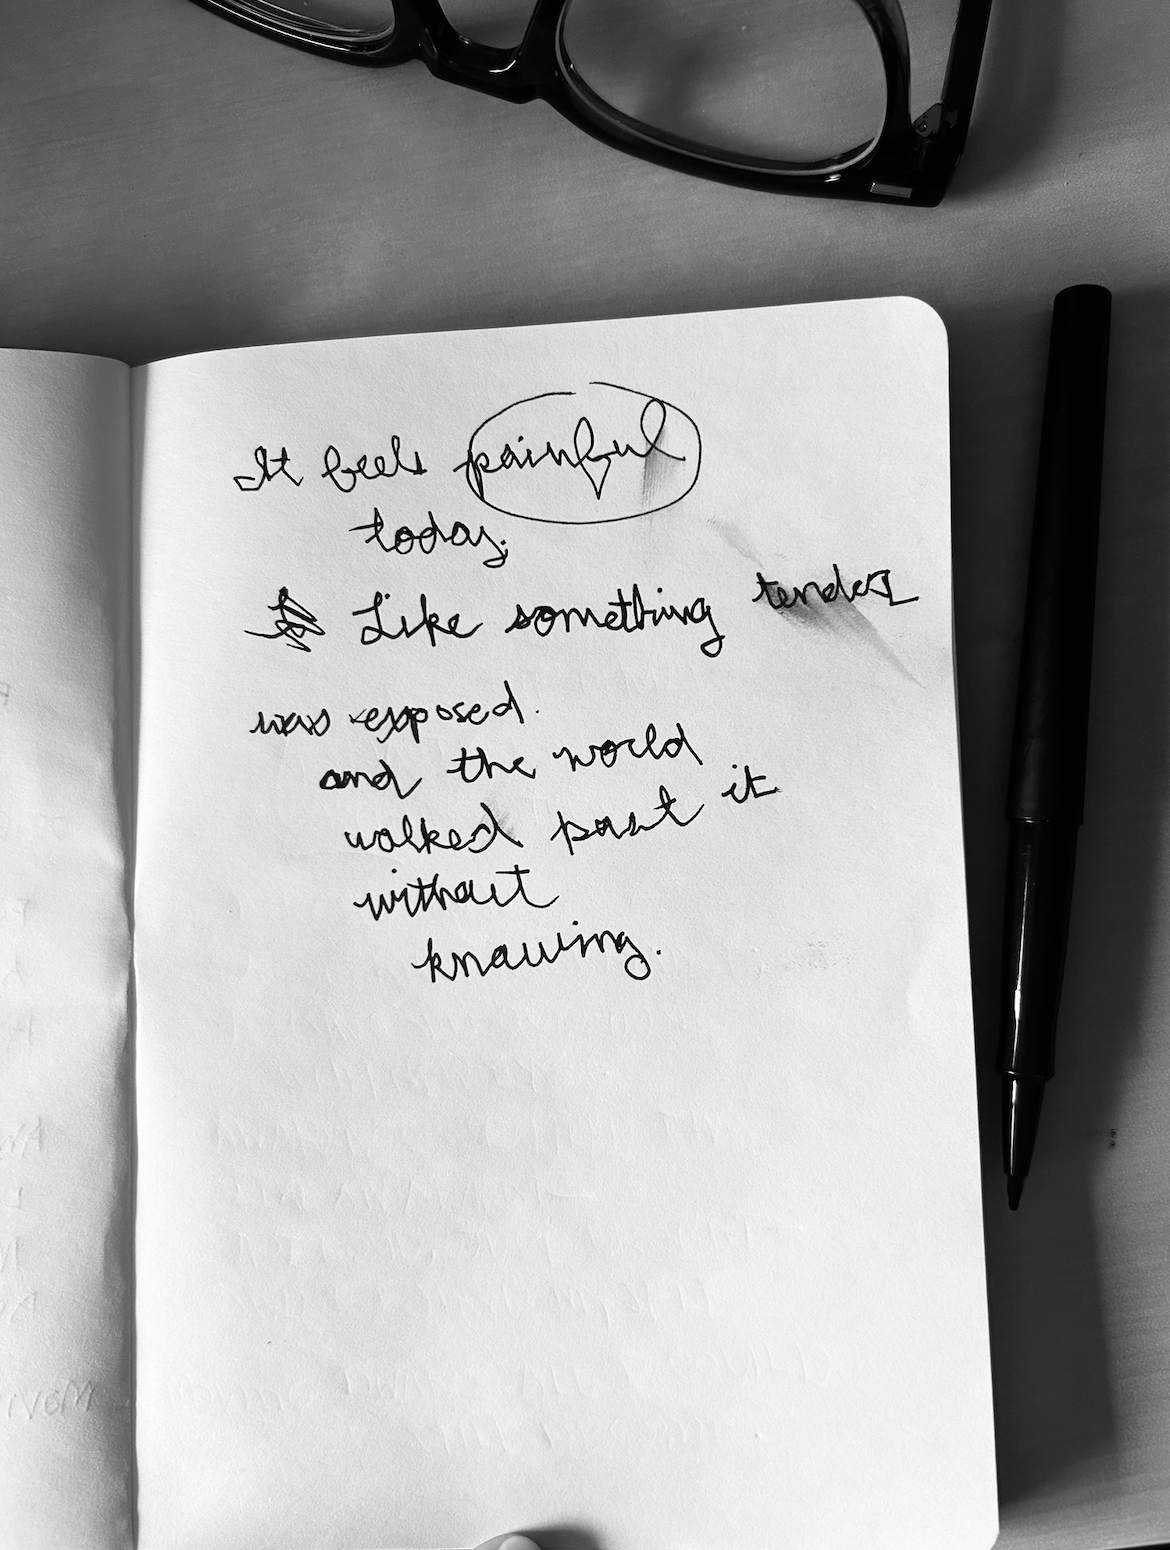 It feels painful
today.
Like something tender
was exposed.
and the world
walked past it
without
knowing.